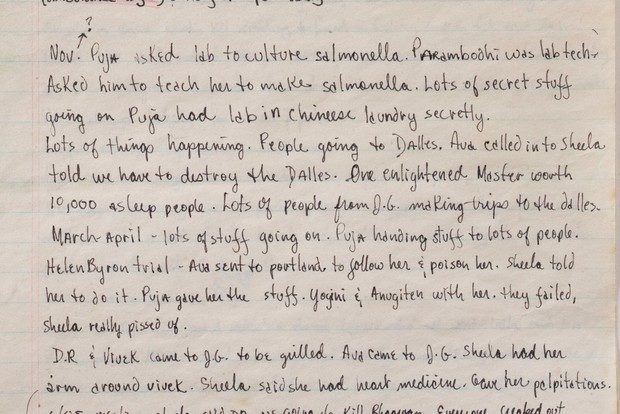 ?
Nov. Puja asked lab to culture salmonella. Parambodhi was lab tech.
Asked him to teach her to make salmonella. Lots of secret stuff
going on Puja had lab in Chineese laundry secretly.
Lots of things happening. People going to Dalles. Ava called into Sheela
told we have to destroy the Dalles. One enlightened Master worth
10,000 asleep people. Lots of people from J.G. making trips to the dalles.
March-April - lots of stuff going on. Puja handing stuff to lots of people.
Helen Byron trial - Ava sent to portland to follow her & poison her. Sheela told
her to do it. Puja gave her the stuff. Yogini & Anugiten with her. they failed,
Sheela really pissed of.
D.R & Vivek came to J.G. to be grilled. Ava came to J.G. Sheela had her
arm around vivek. Sheela said she had heart medicine. Gave her palpitations.